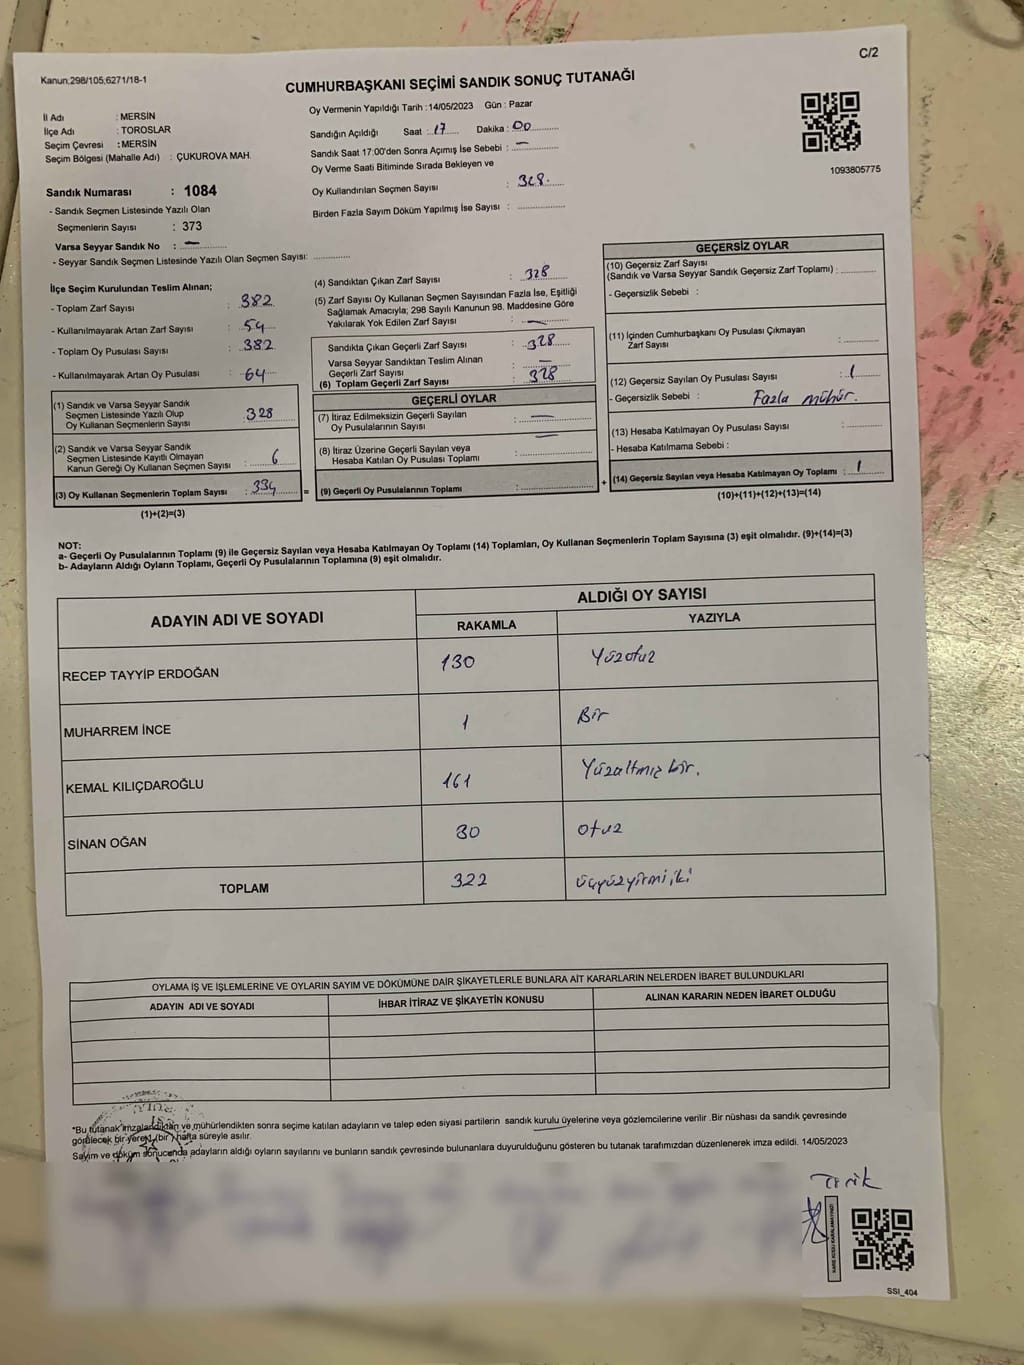 C/2
Kanun;298/105,6271/18-1
CUMHURBAŞKANI SEÇİMİ SANDIK SONUÇ TUTANAĞI
İl Adı : MERSİN
İlçe Adı : TOROSLAR
Seçim Çevresi : MERSİN
Seçim Bölgesi (Mahalle Adı) : ÇUKUROVA MAH.
Sandık Numarası : 1084
- Sandık Seçmen Listesinde Yazılı Olan
Seçmenlerin Sayısı : 373
Varsa Seyyar Sandık No : —
- Seyyar Sandık Seçmen Listesinde Yazılı Olan Seçmen Sayısı: ..............
Oy Vermenin Yapıldığı Tarih :14/05/2023 Gün : Pazar
Sandığın Açıldığı Saat : 17 Dakika : 00
Sandık Saat 17:00'den Sonra Açımış İse Sebebi : —
Oy Verme Saati Bitiminde Sırada Bekleyen ve
Oy Kullandırılan Seçmen Sayısı : 328.
Birden Fazla Sayım Döküm Yapılmış İse Sayısı : ..............
1093805775
İlçe Seçim Kurulundan Teslim Alınan;
- Toplam Zarf Sayısı : 382
- Kullanılmayarak Artan Zarf Sayısı : 54
- Toplam Oy Pusulası Sayısı : 382
- Kullanılmayarak Artan Oy Pusulası : 64
(1) Sandık ve Varsa Seyyar Sandık
Seçmen Listesinde Yazılı Olup
Oy Kullanan Seçmenlerin Sayısı : 328
(2) Sandık ve Varsa Seyyar Sandık
Seçmen Listesinde Kayıtlı Olmayan
Kanun Gereği Oy Kullanan Seçmen Sayısı : 6
(3) Oy Kullanan Seçmenlerin Toplam Sayısı : 334
(1)+(2)=(3)
(4) Sandıktan Çıkan Zarf Sayısı : 328
(5) Zarf Sayısı Oy Kullanan Seçmen Sayısından Fazla İse, Eşitliği
Sağlamak Amacıyla; 298 Sayılı Kanunun 98. Maddesine Göre
Yakılarak Yok Edilen Zarf Sayısı : —
Sandıkta Çıkan Geçerli Zarf Sayısı : 328
Varsa Seyyar Sandıktan Teslim Alınan
Geçerli Zarf Sayısı : —
(6) Toplam Geçerli Zarf Sayısı : 328
GEÇERLİ OYLAR
(7) İtiraz Edilmeksizin Geçerli Sayılan
Oy Pusulalarının Sayısı : —
(8) İtiraz Üzerine Geçerli Sayılan veya
Hesaba Katılan Oy Pusulası Toplamı : —
= (9) Geçerli Oy Pusulalarının Toplamı : ..............
GEÇERSİZ OYLAR
(10) Geçersiz Zarf Sayısı
(Sandık ve Varsa Seyyar Sandık Geçersiz Zarf Toplamı) : ..............
- Geçersizlik Sebebi :
(11) İçinden Cumhurbaşkanı Oy Pusulası Çıkmayan
Zarf Sayısı : ..............
(12) Geçersiz Sayılan Oy Pusulası Sayısı : 1
- Geçersizlik Sebebi : Fazla mühür.
(13) Hesaba Katılmayan Oy Pusulası Sayısı : ..............
- Hesaba Katılmama Sebebi :
+ (14) Geçersiz Sayılan veya Hesaba Katılmayan Oy Toplamı : 1
(10)+(11)+(12)+(13)=(14)
NOT:
a- Geçerli Oy Pusulalarının Toplamı (9) ile Geçersiz Sayılan veya Hesaba Katılmayan Oy Toplamı (14) Toplamları, Oy Kullanan Seçmenlerin Toplam Sayısına (3) eşit olmalıdır. (9)+(14)=(3)
b- Adayların Aldığı Oyların Toplamı, Geçerli Oy Pusulalarının Toplamına (9) eşit olmalıdır.
ADAYIN ADI VE SOYADI ALDIĞI OY SAYISI
RAKAMLA YAZIYLA
RECEP TAYYİP ERDOĞAN 130 Yüzotuz
MUHARREM İNCE 1 Bir
KEMAL KILIÇDAROĞLU 161 Yüzaltmış bir.
SİNAN OĞAN 30 otuz
TOPLAM 322 üçyüzyirmi iki
OYLAMA İŞ VE İŞLEMLERİNE VE OYLARIN SAYIM VE DÖKÜMÜNE DAİR ŞİKAYETLERLE BUNLARA AİT KARARLARIN NELERDEN İBARET BULUNDUKLARI
ADAYIN ADI VE SOYADI İHBAR İTİRAZ VE ŞİKAYETİN KONUSU ALINAN KARARIN NEDEN İBARET OLDUĞU
*Bu tutanak imzalandıktan ve mühürlendikten sonra seçime katılan adayların ve talep eden siyasi partilerin sandık kurulu üyelerine veya gözlemcilerine verilir .Bir nüshası da sandık çevresinde
görülecek bir yere 1 (bir ) hafta süreyle asılır.
Sayım ve döküm sonucunda adayların aldığı oyların sayılarını ve bunların sandık çevresinde bulunanlara duyurulduğunu gösteren bu tutanak tarafımızdan düzenlenerek imza edildi. 14/05/2023
KARE KODU KARALAMAYINIZ!
SSI_404